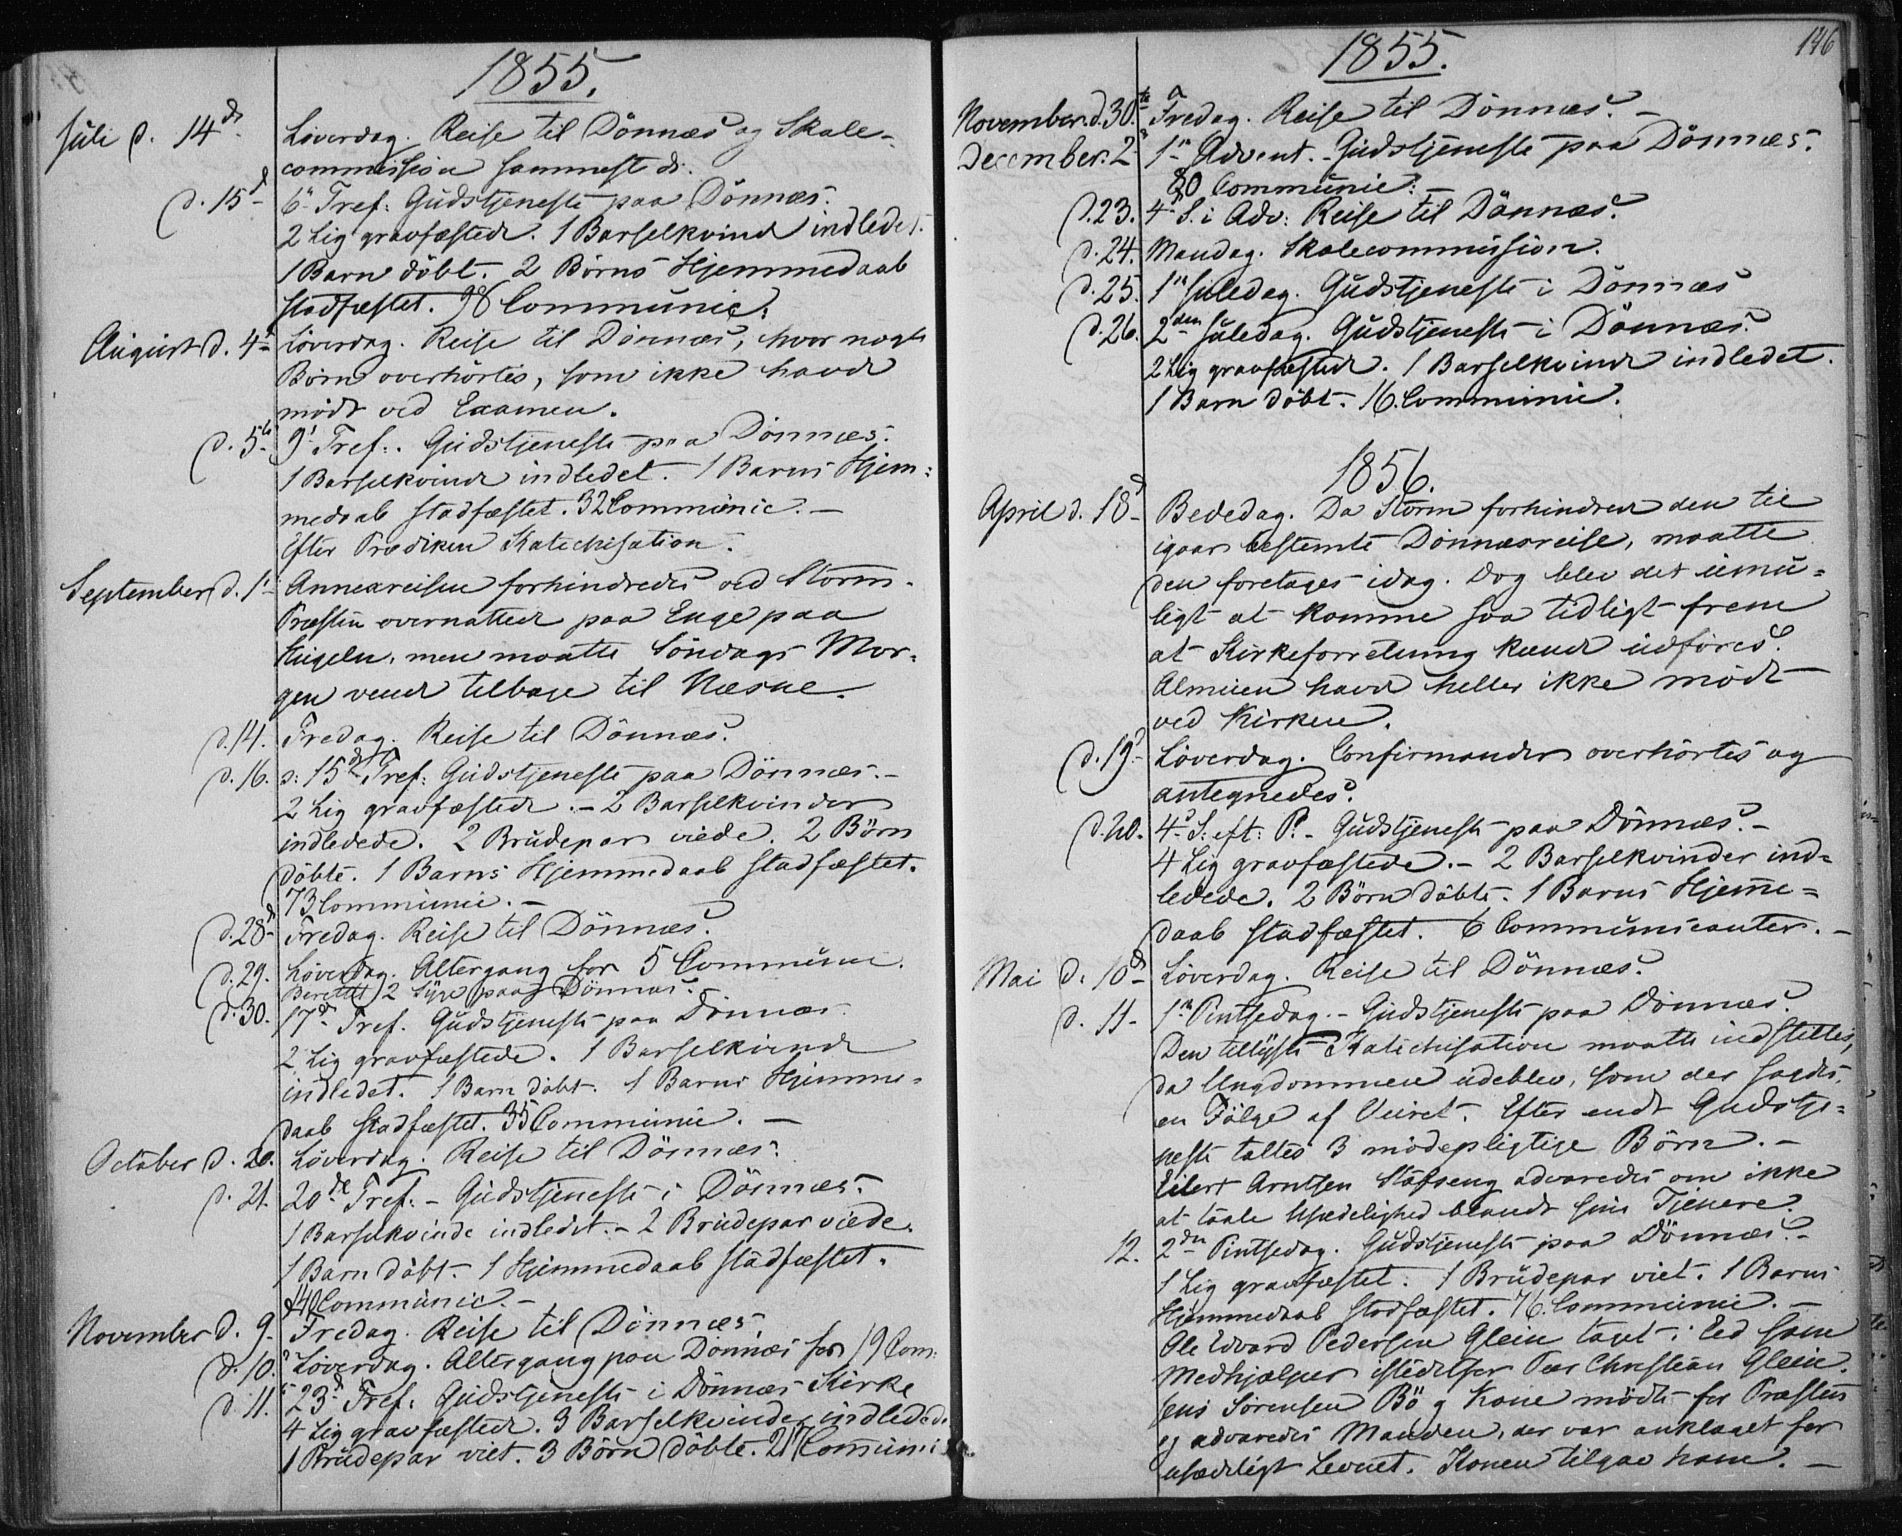 1855.
Juli d. 14de Löverdag. Reise til Dönnæs og Skole-
commission sammesteds.
d. 15d 6te Tref: Gudstjeneste paa Dönnæs.
2 Lig gravfæstede. 1 Barselkvinde indledet.
1 Barn döbt. 2 Börns Hjemmedaab
stadfæstet. 98 Communic:
August d. 4d Löverdag. Reise til Dönnæs, hvor nogle
Börn overhörtes, som ikke havde
mödt ved Examen.
d. 5te 9d Tref:. Gudstjeneste paa Dönnæs.
1 Barselkvinde indledet. 1 Barns Hjem-
medaab stadfæstet. 32 Communic. —
Efter Prædiken Katechisation.
September d. 1 Annexreisen forhindredes ved Storm.
Præsten overnattede paa Enge paa
Hugeln, men maatte Söndags Mor-
gen vende tilbage til Næsne.
d. 14. Fredag. Reise til Dönnæs.
d. 16. s: 15de Tref: Gudstjeneste paa Dönnæs. -
2 Lig gravfæstede. - 2 Barselkvinder
indledede. 2 Brudepar viede. 2 Börn
döbte. 1 Barns Hjemmedaab stadfæstet.
73 Communic. -
d. 28d Fredag. Reise til Dönnæs.
d. 29. Löverdag. Altergang for 5 Communic.
Berettet 2 Syge paa Dönnæs.
d. 30. 17de Tref. Gudstjeneste paa Dönnæs
2 Lig gravfæstede. 1 Barselkvinde
indledet. 1 Barn döbt. 1 Barns Hjemme-
daab Stadfæstet. 35 Communic. —
October d. 20. Löverdag. Reise til Dönnæs.
d. 21. 20de Tref. - Gudstjeneste i Dönnæs.
1 Barselkvinde indledet. - 2 Brudepar viede.
1 Barn döbt. 1 Hjemmedaab stadfæstet.
40 Communic. -
November d. 9. Fredag. Reise til Dönnæs.
d. 10. Löverdag. Altergang paa Dönnæs for 19 Com:
d. 11. 23d Tref: Gudstjeneste i Dönnæs Kirke
4 Lig gravfæstede. 3 Barselkvinder indledede
1 Brudepar viet. 3 Börn döbte. 217 Communi
146
1855.
November d. 30te Fredag. Reise til Dönnæs. -
December 2 1n Advent. - Gudstjeneste paa Dönnæs.
80 Communic:
d. 23. 4d S. i Adv: Reise til Dönnæs.
d. 24. Mandag. Skolecommission.
d. 25. 1n Juledag. Gudstjeneste i Dönnæs
d. 26. 2den Juledag. Gudstjeneste i Dönnæs.
2 Lig gravfæstede. 1 Barselkvinde indledet.
1 Barn döbt. 16. Communic.
1856.
April d. 18d Bededag. Da Storm forhindrede den til
igaar bestemte Dönnæsreise, maatte
den foretages idag. Dog blev det umu-
ligt at komme saa tidligt frem
at Kirkeforretning kunde udföres.
Almuen havde heller ikke mödt
ved Kirken.
d. 19d Löverdag. Confirmander overhörtes og
antegnedes.
d. 20. 4d S: eft: P. - Gudstjeneste paa Dönnæs. -
4 Lig gravfæstede. - 2 Barselkvinder ind-
ledede. 2 Börn döbte. 1 Barns Hjemme-
daab stadfæstet. 6 Communicanter. -
Mai d. 10d Löverdag. Reise til Dönnæs.
d. 11 - 1n Pintsedag. - Gudstjeneste paa Dönnæs.
Den tillyste Katechisation maatte indstilles,
da Ungdommen udeblev, som der sagdes,
en Fölge af Veiret. Efter endt Gudstje-
neste taltes 3 mödepligtige Börn. -
Eilert Arntsen advaredes om ikke
at taale Usædelighed blandt sine Tjenere.
12. 2den Pintsedag. Gudstjeneste paa Dönnæs. -
1 Lig gravfæstet. 1 Brudepar viet. 1 Barns
Hjemmedaab stadfæstet. 76. Communic. -
Ole Edvard Pedersen Glein taget i Ed som
Medhjælper istedetfor Peer Christian Glein.
Jens Sörensen Bö og Kone mödte for Præsten
og advaredes Manden, der var anklaget for
usædeligt Levnet. Konen tilgav ham. -